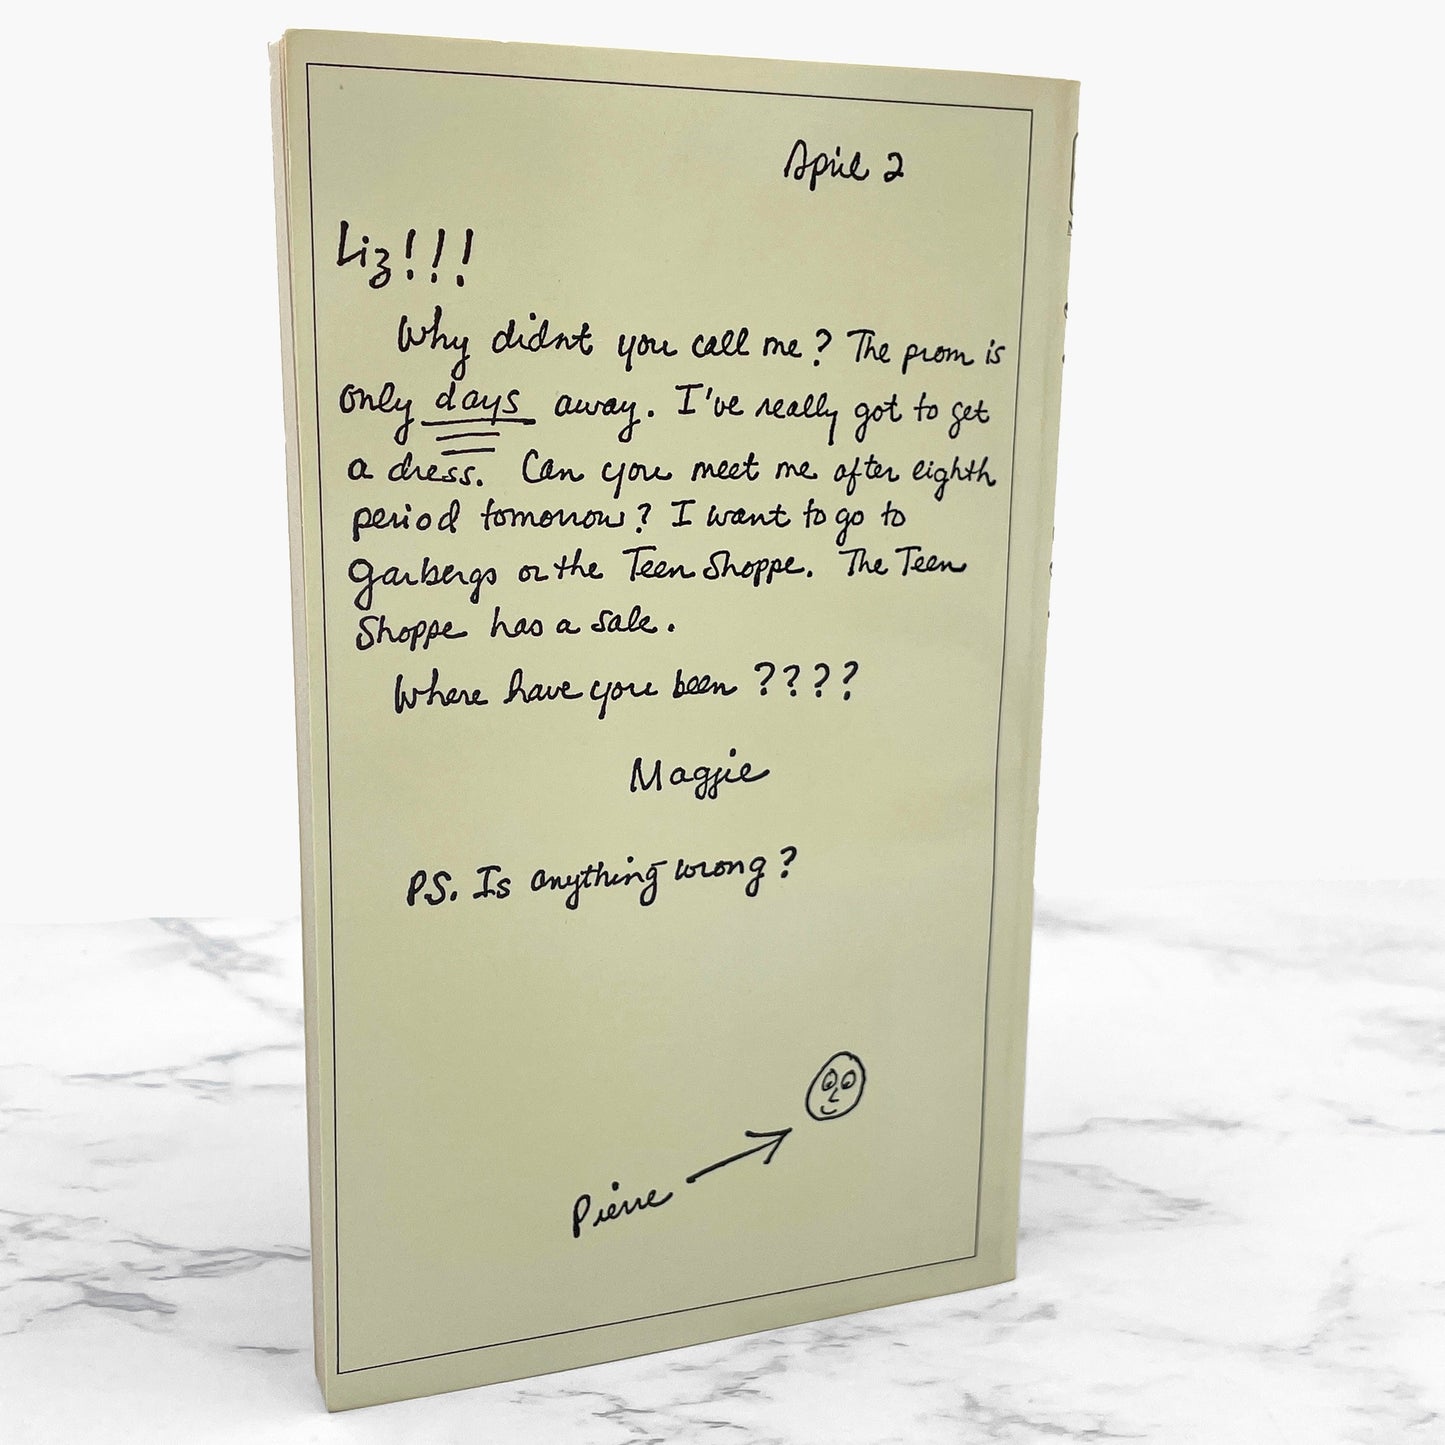 April 2
Liz!!!
Why didn't you call me? The prom is
only days away. I've really got to get
a dress. Can you meet me after eighth
period tomorrow? I want to go to
Garbergs or the Teen Shoppe. The Teen
Shoppe has a sale.
Where have you been ????
Maggie
PS. Is anything wrong?
Pierre